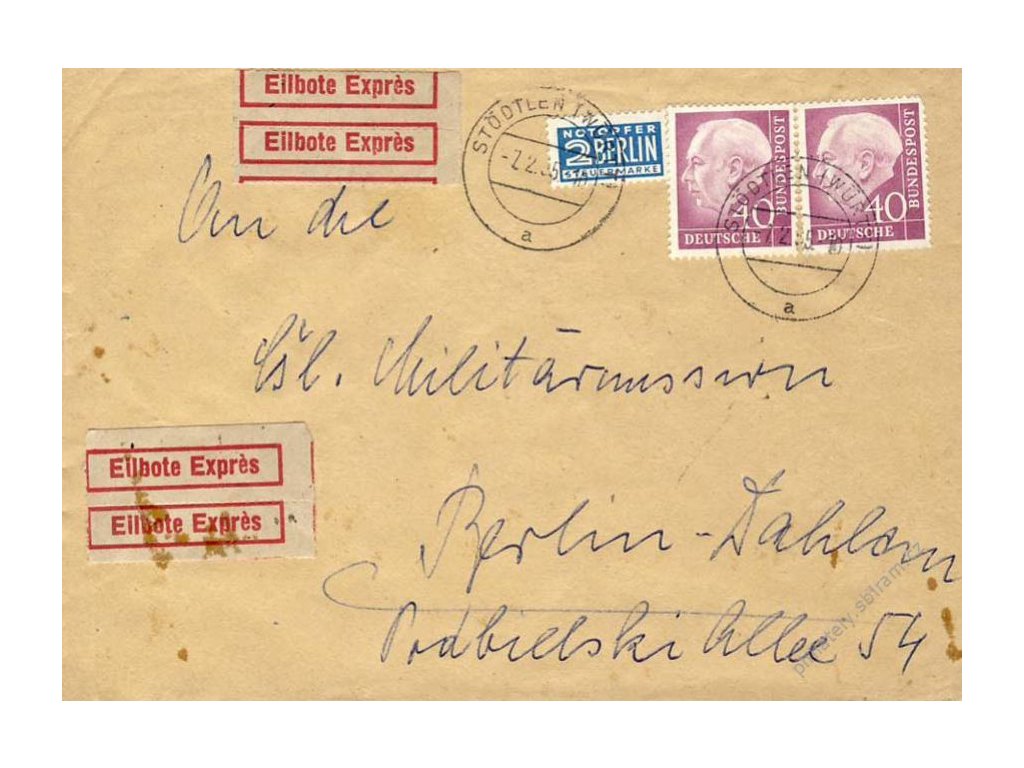 Eilbote Exprès
Eilbote Exprès
STÖDTLEN (WÜRTT)
-7.2.55
a
NOTOPFER
2 BERLIN
STEUERMARKE
40
DEUTSCHE
BUNDESPOST
40
DEUTSCHE
BUNDESPOST
STÖDTLEN (WÜRTT)
7.2.55
a
An die
Čsl. Militärmission
Eilbote Exprès
Eilbote Exprès
Berlin-Dahlem
Podbielski Allee 54